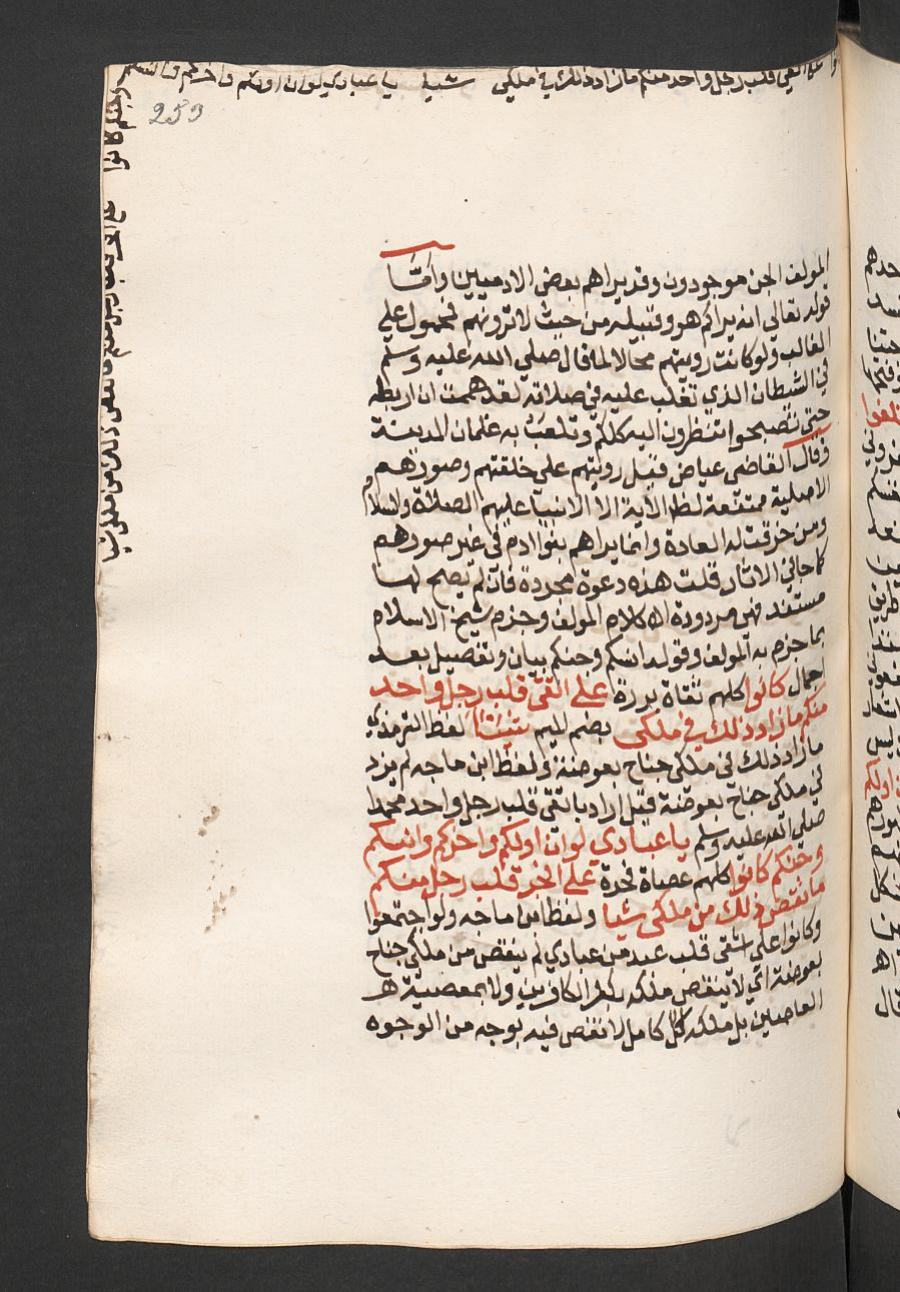 علي اتقي قلب رجل واحد منكم مازاد ذلك في ملكي شيا يا عبادي لوان اولكم واخركم وانسكم
وجنكم كانوا علي افجر قلب رجل منكم مانقص ذلك من ملكي شيا
259
المولف الجن موجودون وقد يراهم بعض الادميين وامّا
قوله تعالي انه يراكم هو وقبيله من حيث لا ترونهم فمحمول علي
الغالب ولو كانت رويتهم محالا لما قال صلي الله عليه وسلم
في الشطان الذي تغلب عليه في صلاته لقد هممت ان اربطه
حتي تصبحوا تنظرون اليه كلكم وتلعب به غلمان المدينة
وقال القاضي عياض قيل رويتهم علي خلقتهم وصورهم
الاصلية ممتنعة لظاهر الاية الا الانبيا عليهم الصلاة والسلام
ومن خرقت له العادة وانما يراهم بنوا ادم في غير صورهم
كما جا في الاثار قلت هذه دعوة مجردة فان لم يصح لها
مستند فهي مردودة اه كلام المولف وجزم شيخ الاسلام
بما جزم به المولف وقوله انسكم وجنكم بيان وتفصيل بعد
اجمال كانوا كلهم تقاة بررة علي اتقي قلب رجل واحد
منكم مازاد ذلك في ملكي بضم الميم شيئا لفظ الترمذي
مازاد ذلك في ملكي جناح بعوضة ولفظ ابن ماجه لم يزد
في ملكي جناح بعوضة قيل اراد باتقي قلب رجل واحد محمدا
صلي الله عليه وسلم يا عبادي لوان اولكم واخركم وانسكم
وجنكم كانوا كلهم عصاة فجرة علي افجر قلب رجل منكم
مانقص ذلك من ملكي شيا ولفظ ابن ماجه ولو اجتمعوا
وكانوا علي اشقي قلب عبد من عبادي لم ينقص من ملكي جناح
بعوضة اي لا ينقص ملكه بكفر الكافرين ولا بمعصية
العاصين بل ملكه كامل لا نقص فيه بوجه من الوجوه